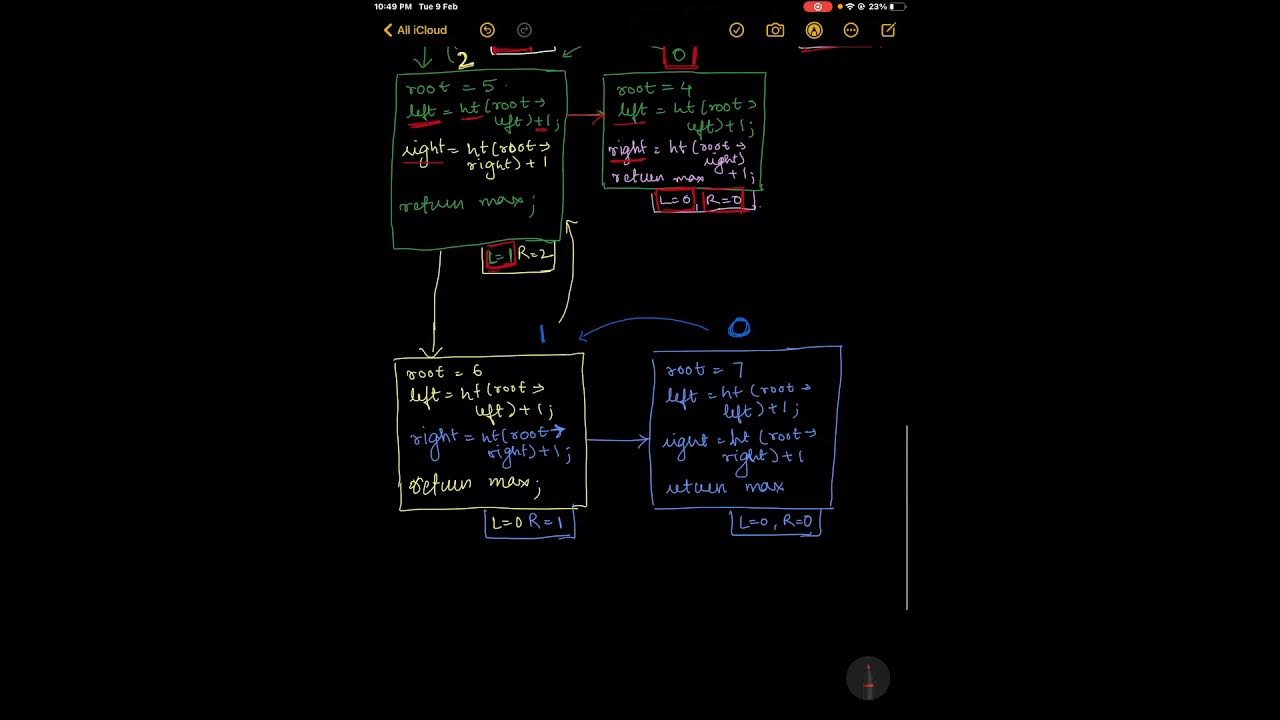 10:49 PM Tue 9 Feb
23%
All iCloud
2
0
root = 5
left = ht(root→
left)+1;
right = ht(root→
right)+1
return max;
L=1 R=2
root = 4
left = ht(root→
left)+1;
right = ht(root→
right)
+1;
return max
L=0, R=0
1
0
root = 6
left = ht(root→
left)+1;
right = ht(root→
right)+1;
return max;
L=0 R=1
root = 7
left = ht(root→
left)+1;
right = ht(root→
right)+1
return max
L=0, R=0